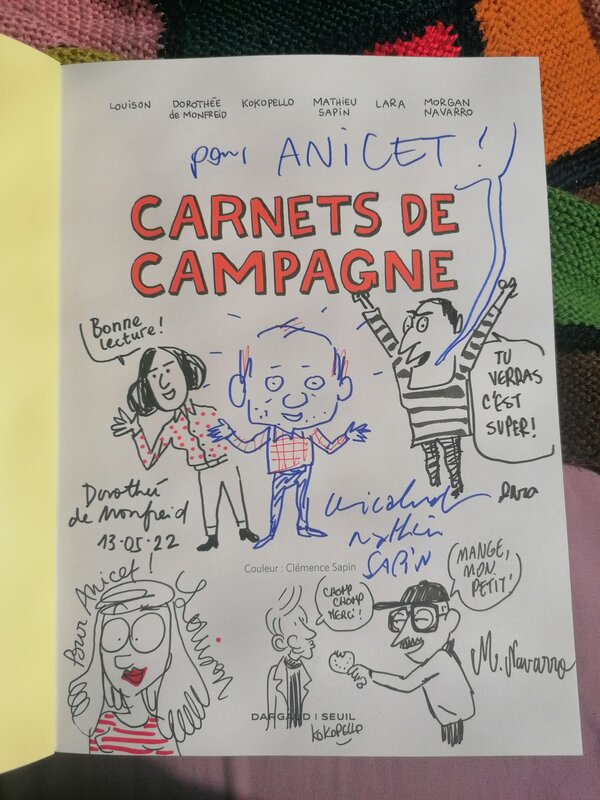 LOUISON DOROTHÉE KOKOPELLO MATHIEU LARA MORGAN
de MONFREID SAPIN NAVARRO
pour ANICET !
CARNETS DE
CAMPAGNE
Bonne
lecture !
TU
VERRAS
C'EST
SUPER !
Dorothée
de Monfreid
13.05.22
Mathieu
SAPIN
Couleur : Clémence Sapin
Pour Anicet !
Louison
CHOMP
CHOMP
MERCI !
MANGE,
MON
PETIT !
M. Navarro
DARGAUD | SEUIL
KOKOPELLO